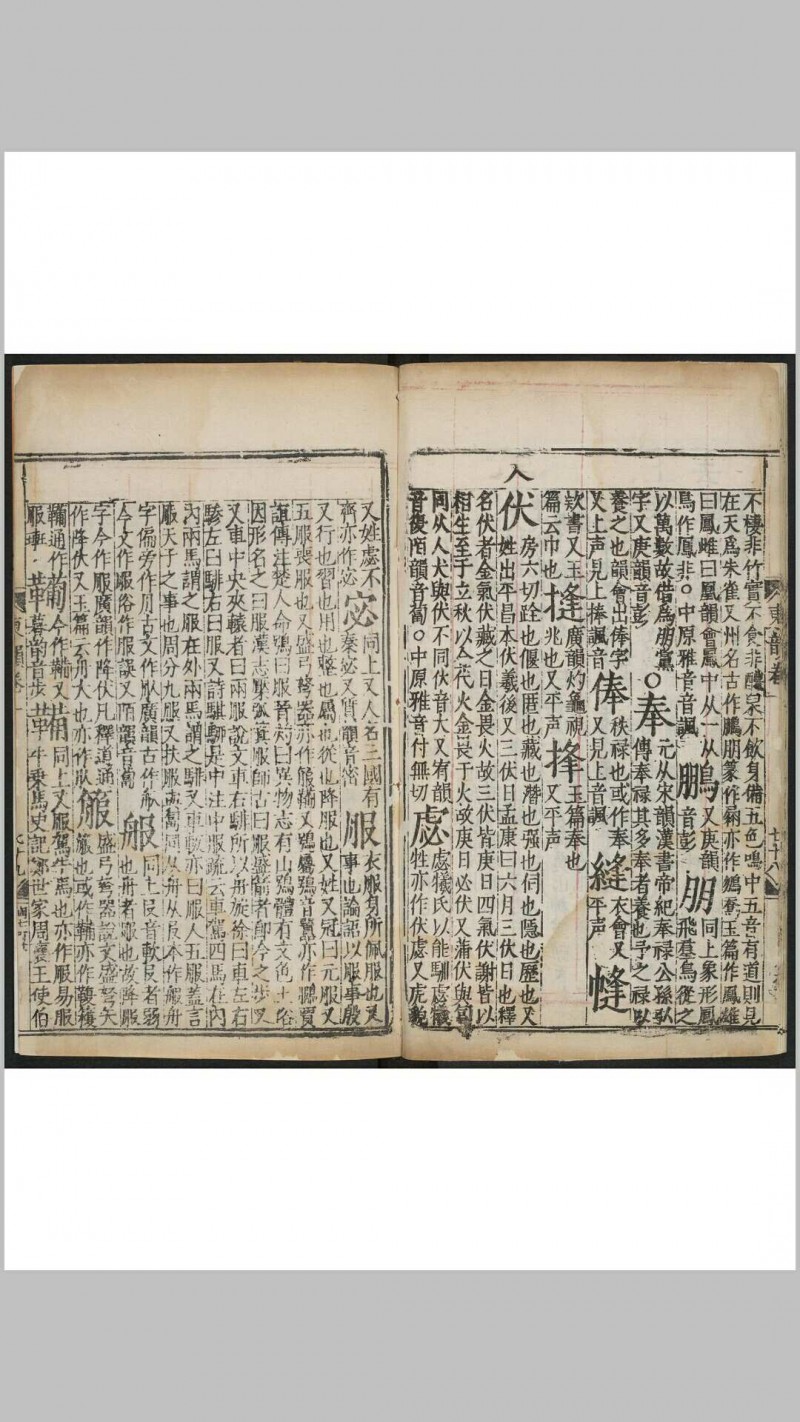 不棲非竹實不食非醴泉不飲身備五色鳴中五音有道則見
在天爲朱雀又州名古作鵬朋篆作 亦作 玉篇作鳳雄
曰鳳雌曰凰韻會鳳中从一从鳥又庚韻
鳥作鳳非○中原雅音音諷 鵬音彭 朋同上象形鳳飛羣鳥從之
以萬數故借爲朋黨○奉元从宋韻漢書帝紀奉禄公孫弘
字又庚韻音彭 傳奉禄甚多奉者養也予之禄以
養之也韻會出俸字 俸秩禄也或作奉 縫衣會又
又上声見上捧諷音 又見上音諷 平声 㡝
欸書又玉 摓廣韻灼龜視 捀玉篇奉也
篇云巾也 兆也又平声 又平声
入 伏房六切跧也偃也匿也藏也潛也强也伺也隠也歷也又
姓出平昌本伏羲後又三伏日孟康曰六月三伏日也釋
名伏者金氣伏藏之日金畏火故三伏皆庚日四氣伏謝皆以
相生至于立秋以金代火金畏于火故庚日必伏又蒲伏與匐
同从人犬與伏不同伏音大又宥韻 虙虙犧氏以能馴虙犧
音復陌韻音匐○中原雅音付無切 牲亦作伏虙又虎貌
東韻卷一 七十八
又姓虙不 宓同上又人名三國有 服衣服身所佩服也又
齊亦作宓 秦宓又質韻音密 事也論語以服事殷
又行也習也用也整也屬也從也降服也又姓又冠曰元服又
五服喪服也又盛弓弩器亦作箙鞴又鵩鵩鳥音翼亦作 賈
誼傳注楚人命鴞曰服晉灼曰異物志有山鴞體有文色土俗
因形名之曰服漢志檿弧箕服師古曰服盛箭者卽今之步又
又車中央夾轅者曰兩服說文車右騑所以舟旋徐曰車左右
驂左曰騑右曰服又詩騏騮是中注中服疏云車駕四馬在内
内兩馬謂之服在外兩馬謂之騑又車軗亦曰服人五服蓋言
服天子之事也周分九服又扶服與匍匐同从舟从𠬝本作𦨕舟
字偏旁作月古文作𦨈廣韻古作 舧同上𠬝音軟𠬝者弱
今文作服俗作服誤又陌韻音匐 也舟者服也故降服
字今作服廣韻作降伏凡釋道通 箙盛弓弩器說文盛弩矢
作降伏又玉篇云舟大也亦作𦨈 箙也或作鞴亦作鞁韄
鞴通作 𤰈今作鞴又 犕同上又服駕牛馬也亦作服易服
服 暮韻音步 牛乗馬史記鄭世家周襄王使伯
東韻卷一 七十九